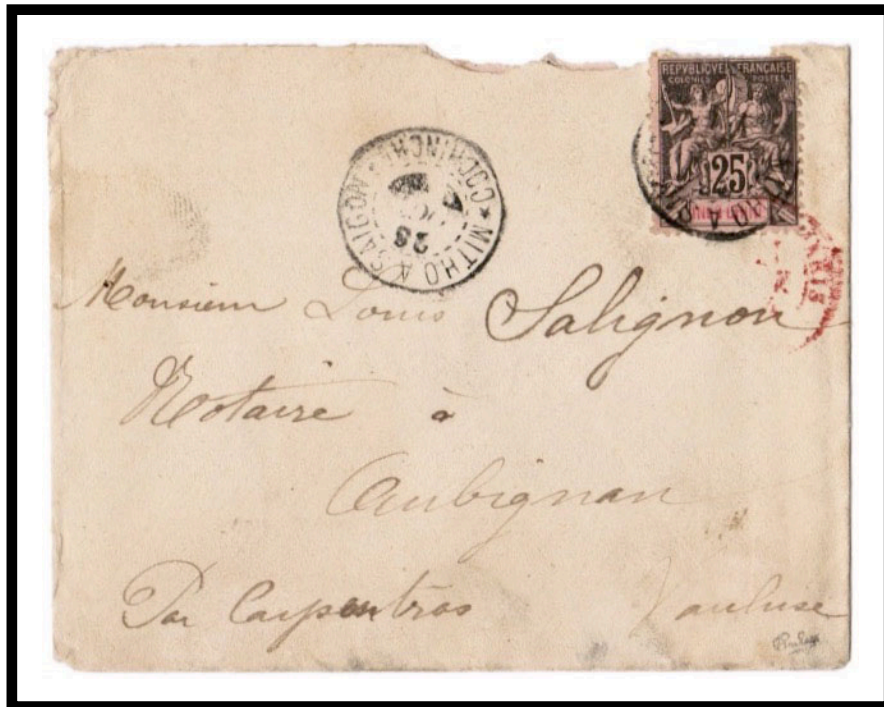 REPVBLIQVE FRANÇAISE
COLONIES POSTES
25
INDO-CHINE
MITHO A SAIGON
★ COCHINCH
4
28
PARIS
Monsieur Louis Salignon
Notaire à
Aubignan
Par Carpentras Vaucluse